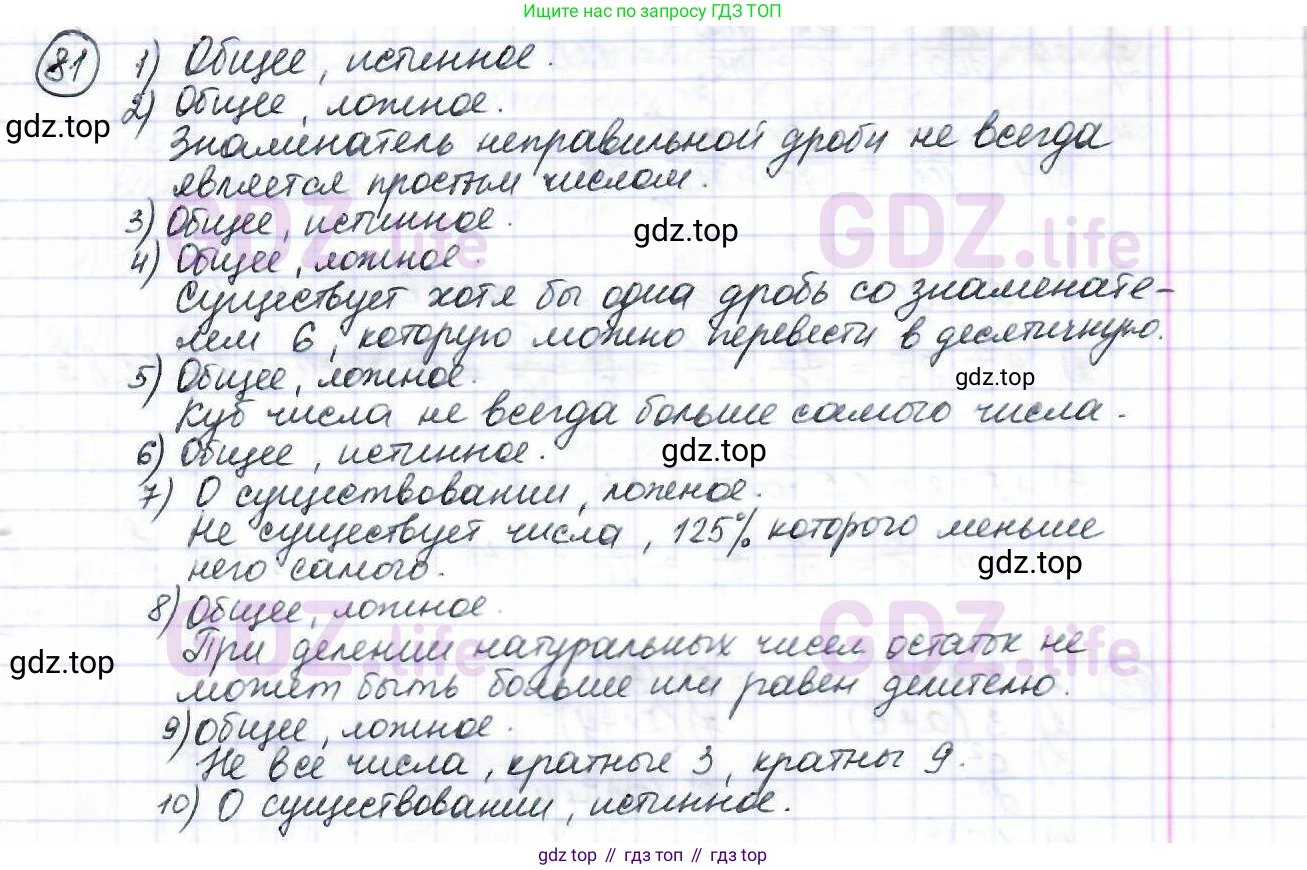 Ищите нас по запросу ГДЗ ТОП
81 1) Общее, истинное.
2) Общее, ложное.
gdz.top
Знаменатель неправильной дроби не всегда
является простым числом.
GDZ.life GDZ.life
3) Общее, истинное.
gdz.top
4) Общее, ложное.
Существует хотя бы одна дробь со знаменате-
лем 6, которую можно перевести в десятичную.
5) Общее, ложное.
gdz.top
Куб числа не всегда больше самого числа.
6) Общее, истинное.
gdz.top
7) О существовании, ложное.
Не существует числа, 125% которого меньше
него самого.
gdz.top
8) Общее, ложное.
GDZ.life GDZ.life
При делении натуральных чисел остаток не
gdz.top
может быть больше или равен делителю.
9) Общее, ложное.
Не все числа, кратные 3, кратны 9.
10) О существовании, истинное.
gdz top // гдз топ // gdz top